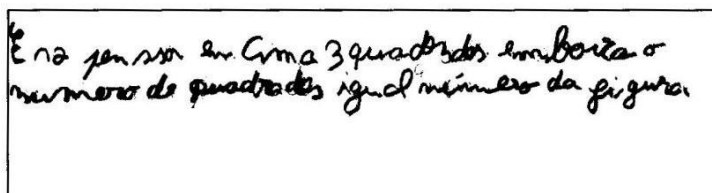 É só pensar em Cima 3 quadrados em baixo o
número de quadrados igual número da figura.